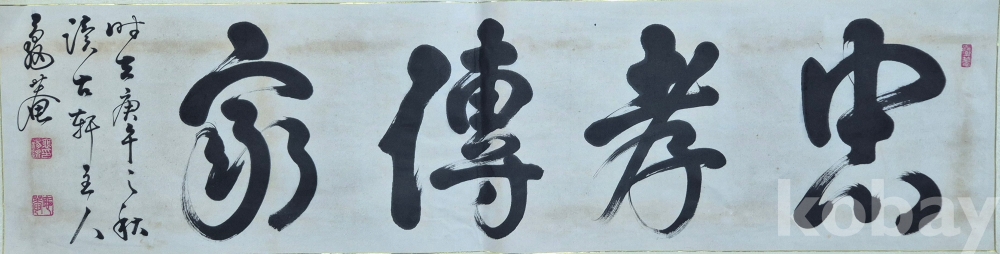 忠孝傳家
時在庚午之秋
讀古軒主人
kobay